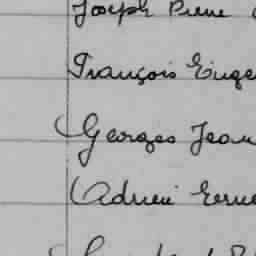 Joseph Pierre
François Euge
Georges Jean
Adrien Erne